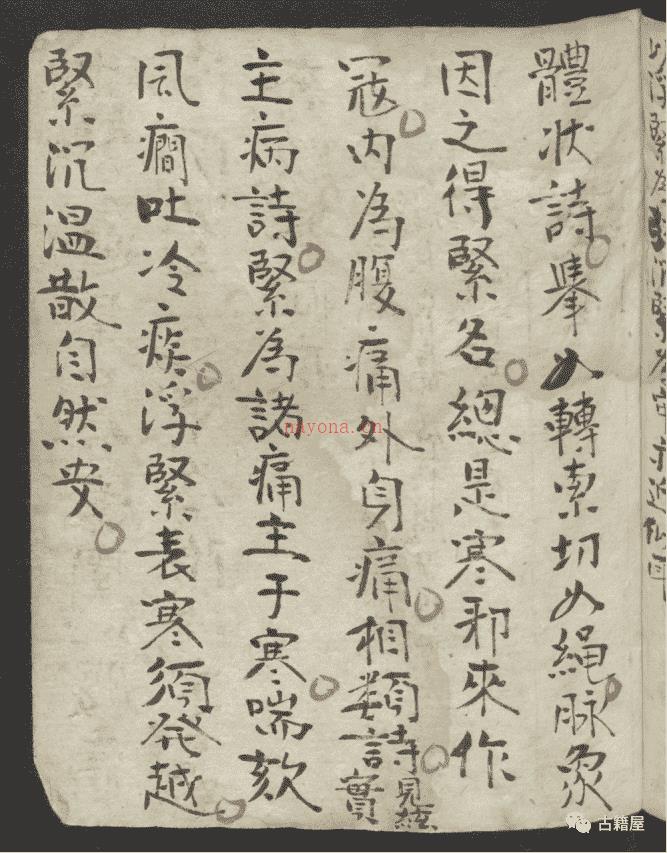 體状詩。舉如轉索切如繩。脉象
因之得緊名。總是寒邪來作
寇。内為腹痛外身痛。相類詩。見弦實
主病詩。緊為諸痛主于寒。喘欬
風癇吐冷痰。浮緊表寒須発越。
緊沉温散自然安。
nayona.cn
古籍屋